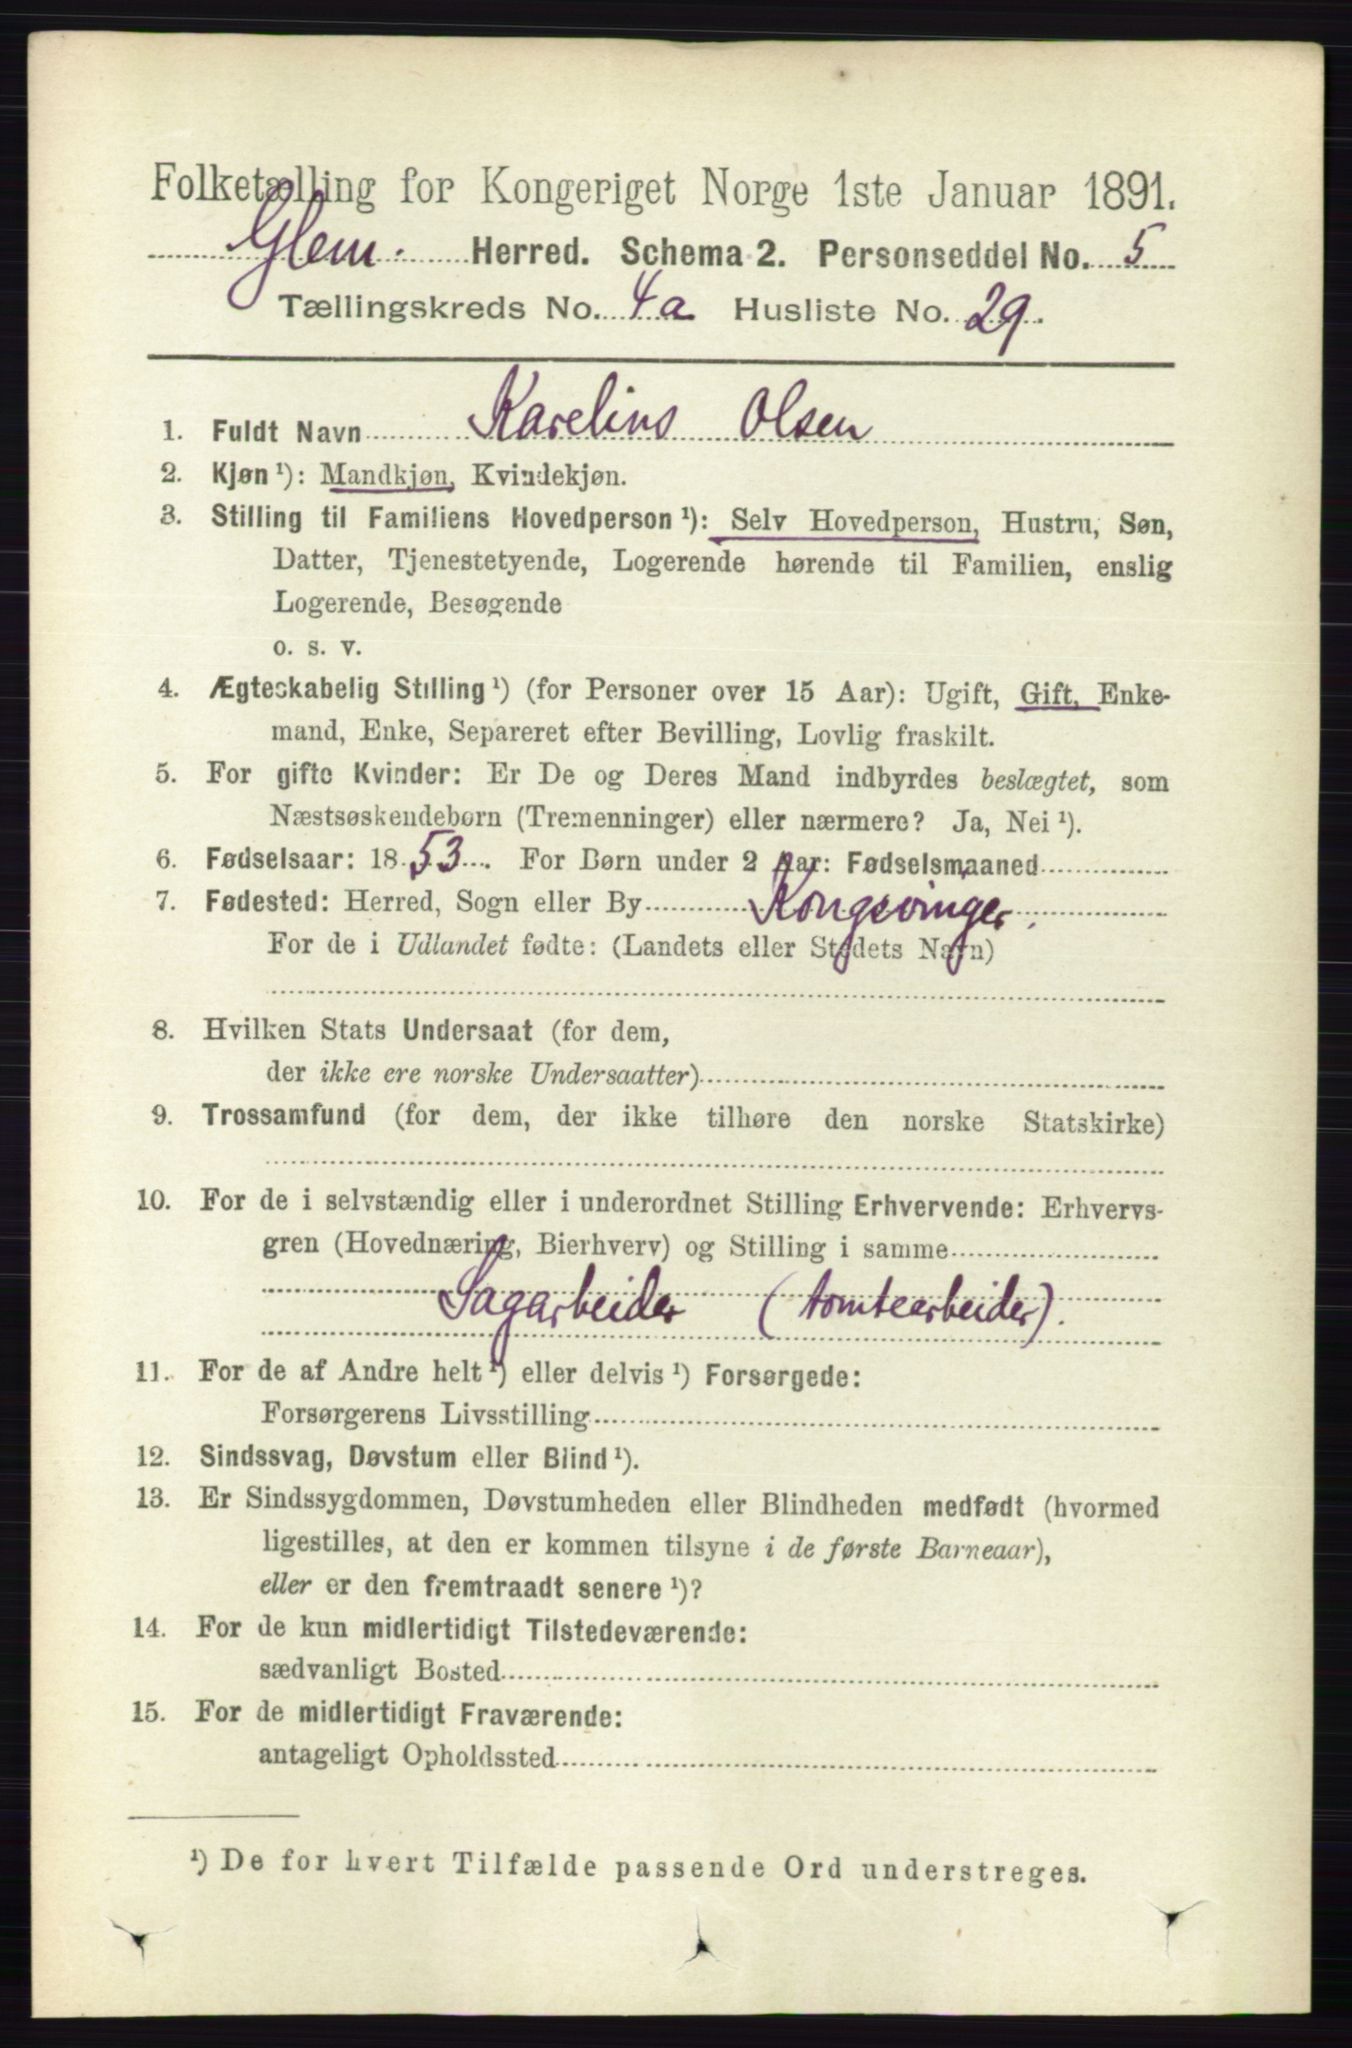 Folketælling for Kongeriget Norge 1ste Januar 1891.
Glem. Herred. Schema 2. Personseddel No. 5
Tællingskreds No. 4a Husliste No. 29.
1. Fuldt Navn Karelius Olsen
2. Kjøn ¹): Mandkjøn, Kvindekjøn.
3. Stilling til Familiens Hovedperson ¹): Selv Hovedperson, Hustru, Søn,
Datter, Tjenestetyende, Logerende hørende til Familien, enslig
Logerende, Besøgende
o. s. v.
4. Ægteskabelig Stilling ¹) (for Personer over 15 Aar): Ugift, Gift, Enke-
mand, Enke, Separeret efter Bevilling, Lovlig fraskilt.
5. For gifte Kvinder: Er De og Deres Mand indbyrdes beslægtet, som
Næstsøskendebørn (Tremenninger) eller nærmere? Ja, Nei ¹).
6. Fødselsaar: 1853. For Børn under 2 Aar: Fødselsmaaned
7. Fødested: Herred, Sogn eller By Kongsvinger.
For de i Udlandet fødte: (Landets eller Stedets Navn)
8. Hvilken Stats Undersaat (for dem,
der ikke ere norske Undersaatter)
9. Trossamfund (for dem, der ikke tilhøre den norske Statskirke)
10. For de i selvstændig eller i underordnet Stilling Erhvervende: Erhvervs-
gren (Hovednæring, Bierhverv) og Stilling i samme
Sagarbeider (tomtearbeider).
11. For de af Andre helt ¹) eller delvis ¹) Forsørgede:
Forsørgerens Livsstilling
12. Sindssvag, Døvstum eller Blind ¹).
13. Er Sindssygdommen, Døvstumheden eller Blindheden medfødt (hvormed
ligestilles, at den er kommen tilsyne i de første Barneaar),
eller er den fremtraadt senere ¹)?
14. For de kun midlertidigt Tilstedeværende:
sædvanligt Bosted
15. For de midlertidigt Fraværende:
antageligt Opholdssted
¹) De for hvert Tilfælde passende Ord understreges.